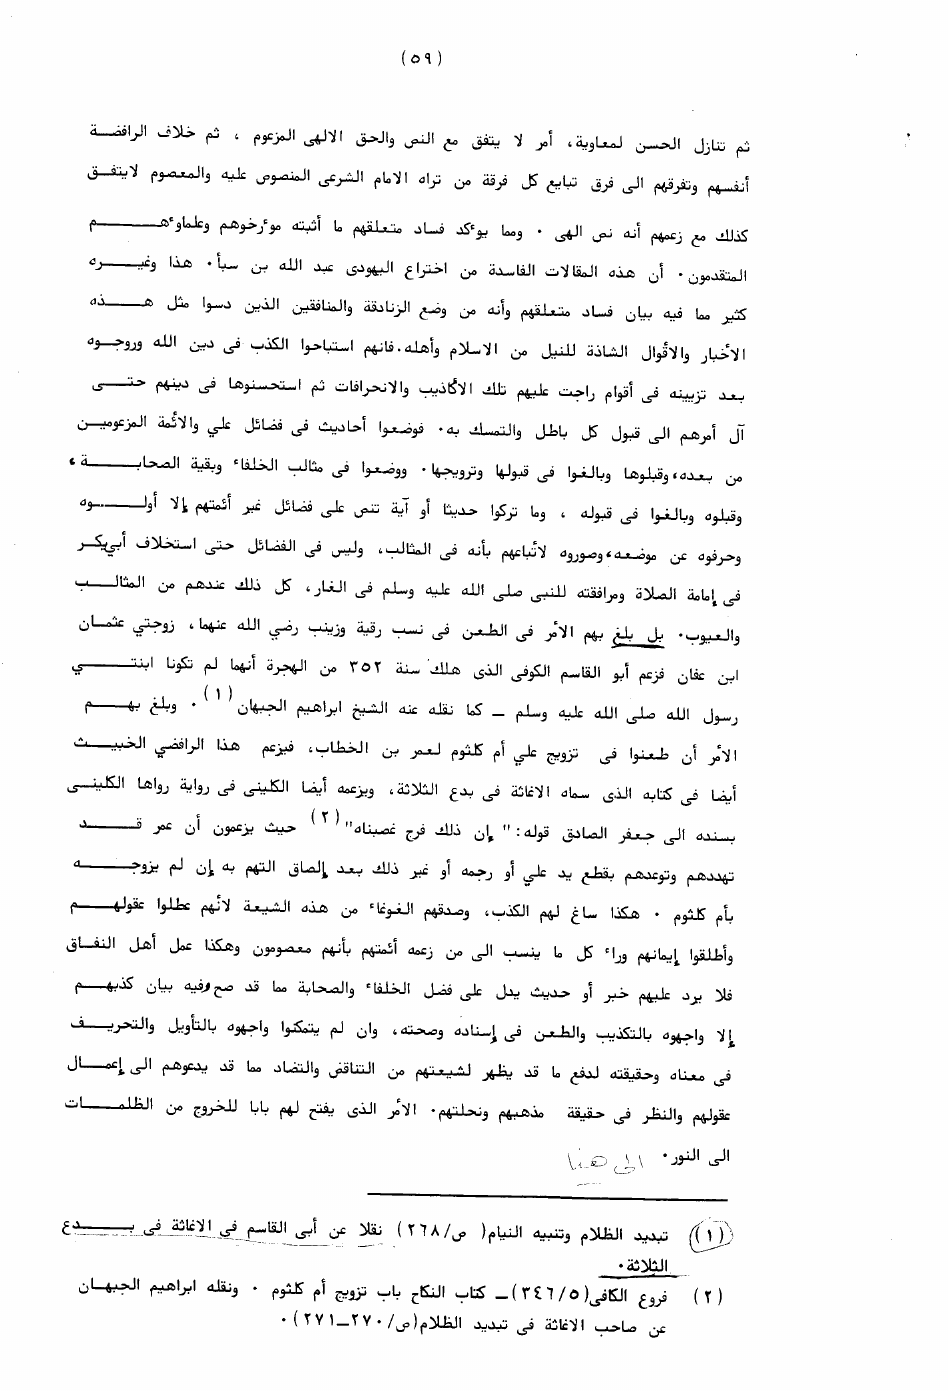 (٥٩)
ثم تنازل الحسن لمعاوية، أمر لا يتفق مع النص والحق الالهى المزعوم ، ثم خلاف الرافضة
أنفسهم وتفرقهم الى فرق تبايع كل فرقة من تراه الامام الشرعى المنصوص عليه والمعصوم لايتفق
كذلك مع زعمهم أنه نص الهى ٠ ومما يوٴكد فساد متعلقهم ما أثبته موٴرخوهم وعلماوٴهم
المتقدمون٠ أن هذه المقالات الفاسدة من اختراع اليهودى عبد الله بن سبأ٠ هذا وغيره
كثير مما فيه بيان فساد متعلقهم وأنه من وضع الزنادقة والمنافقين الذين دسوا مثل هذه
الأخبار والأقوال الشاذة للنيل من الاسلام وأهله٠فانهم استباحوا الكذب فى دين الله وروجوه
بعد تزيينه فى أقوام راجت عليهم تلك الأكاذيب والانحرافات ثم استحسنوها فى دينهم حتى
آل أمرهم الى قبول كل باطل والتمسك به٠ فوضعوا أحاديث فى فضائل علي والأئمة المزعومين
من بعده، وقبلوها وبالغوا فى قبولها وترويجها٠ ووضعوا فى مثالب الخلفاء وبقية الصحابة،
وقبلوه وبالغوا فى قبوله ، وما تركوا حديثا أو آية تنص على فضائل غير أئمتهم إلا أولوه
وحرفوه عن موضعه، وصوروه لأتباعهم بأنه فى المثالب، وليس فى الفضائل حتى استخلاف أبي بكر
فى إمامة الصلاة ومرافقته للنبى صلى الله عليه وسلم فى الغار، كل ذلك عندهم من المثالب
والعيوب٠ بل بلغ بهم الأمر فى الطعن فى نسب رقية وزينب رضي الله عنهما، زوجتي عثمان
ابن عفان فزعم أبو القاسم الكوفى الذى هلك سنة ٣٥٢ من الهجرة أنهما لم تكونا ابنتي
رسول الله صلى الله عليه وسلم ـ كما نقله عنه الشيخ ابراهيم الجبهان (١) ٠ وبلغ بهم
الأمر أن طعنوا فى تزويج علي أم كلثوم لعمر بن الخطاب، فيزعم هذا الرافضي الخبيث
أيضا فى كتابه الذى سماه الاغاثة فى بدع الثلاثة، ويزعمه أيضا الكلينى فى رواية رواها الكلينى
بسنده الى جعفر الصادق قوله: "إن ذلك فرج غصبناه" (٢) حيث يزعمون أن عمر قد
تهددهم وتوعدهم بقطع يد علي أو رجمه أو غير ذلك بعد إلصاق التهم به إن لم يزوجه
بأم كلثوم ٠ هكذا ساغ لهم الكذب، وصدقهم الغوغاء من هذه الشيعة لأنهم عطلوا عقولهم
وأطلقوا إيمانهم وراء كل ما ينسب الى من زعمه أئمتهم بأنهم معصومون وهكذا عمل أهل النفاق
فلا يرد عليهم خبر أو حديث يدل على فضل الخلفاء والصحابة مما قد صح وفيه بيان كذبهم
إلا واجهوه بالتكذيب والطعن فى إسناده وصحته، وان لم يتمكنوا واجهوه بالتأويل والتحريف
فى معناه وحقيقته لدفع ما قد يظهر لشيعتهم من التناقض والتضاد مما قد يدعوهم الى إعمال
عقولهم والنظر فى حقيقة مذهبهم ونحلتهم٠ الأمر الذى يفتح لهم بابا للخروج من الظلمات
الى النور٠ الى هنا
(١) تبديد الظلام وتنبيه النيام( ص/٢٦٨) نقلا عن أبى القاسم فى الاغاثة فى بدع
الثلاثة٠
(٢) فروع الكافى(٣٤٦/٥)ـ كتاب النكاح باب تزويج أم كلثوم ٠ ونقله ابراهيم الجبهان
عن صاحب الاغاثة فى تبديد الظلام(ص/٢٧٠ـ٢٧١)٠